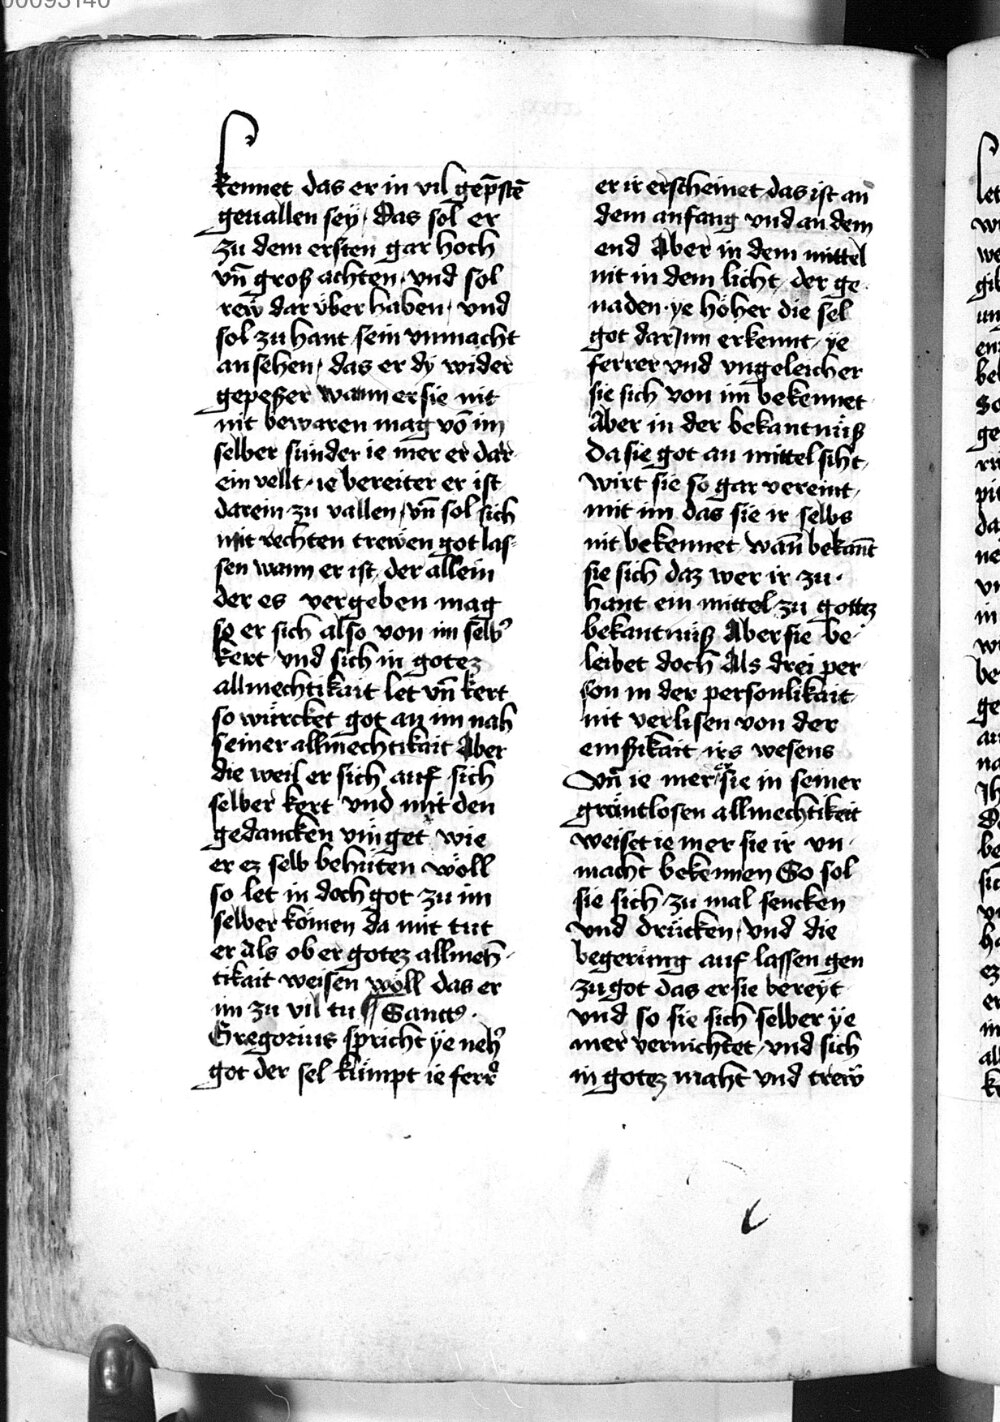 kennet das er in vil gep̄stē
geuallen seÿ · Das sol er
zu dem ersten gar hoch
vn̄ groß achten · vnd sol
rew̃ dar vber haben · vnd
sol zu hant sein vnmacht
an sehen / das er dy wider
gepeßer wann er sie nit
nit bewaren mag vō im
selber sunder ie mer er dar
ein vellt · ie bereiter er ist
darein zu vallen / vn̄ sol sich
mit rechten trewen got las-
sen wann er ist der allein
der es vergeben mag
so er sich also von im selb᷒
kert · vnd sich in gotez
allmechtikait let vn̄ kert
so würcket got an im nah
seiner allmechtikait Aber
die weil er sich auf sich
selber kert vnd mit den
gedancken vmget wie
er ez selb behüten wöll
so let in doch got zu im
selber komen da mit tut
er Als ob er gotez allmeh-
tikait weisen wöll das er
im zu vil tu Sanct᷒
Gregorius spricht ÿe neh᷒
got der sel kumpt ie ferr᷒
er ir erscheinet das ist an
dem anfang vnd an dem
end Aber in dem mittel
nit in dem licht der ge
naden · ye höher die sel
got darjnn erkennt · ye
ferrer vnd vngeleicher
sie sich von im bekennet
Aber in der bekantnüß
Da sie got an mittel siht
wirt sie so gar vereint
mit im das sie ir selbs
nit bekennet wan̄ bekan̄t
sie sich daz wer ir zu ·
hant ein mittel zu gottez
bekantnüß Aber sie be-
leibet doch Als drei per
son in der personlikait
nit verlisen von der
einßikait irs wesens
Vn̄ ie mer er sie in seiner
gröntlosen allmechtikeit
weiset ie mer sie ir vn-
macht bekennen So sol
sie sich zu mal sencken
vnd drücken · vnd die
begerüng auf lassen gen
zu got das er sie bereÿt
vnd so sie sich selber ÿe
mer vernichtet · vnd sich
in gotez maht vnd trew̃